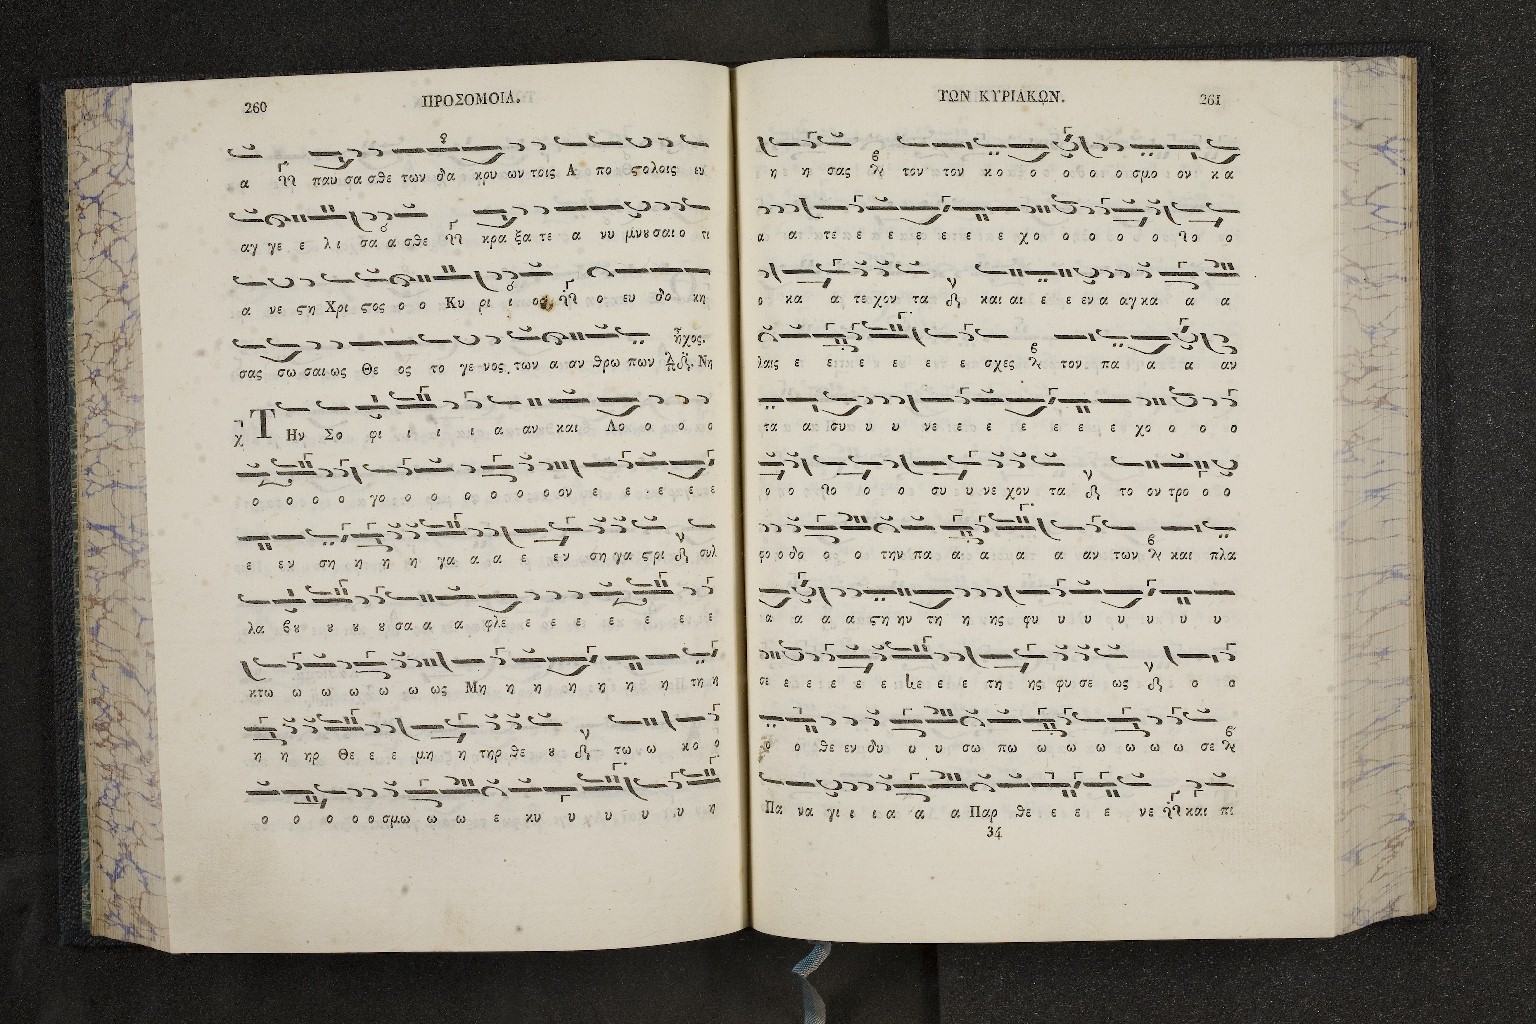 260
ΠΡΟΣΟΜΟΙΑ.
α παυ σα σθε των δα κρυ ων τοις Α πο ϛολοις ευ
αγ γε ε λι σα α σθε κρα ξα τε α νυ μνȣσαι ο τι
α νε ϛη Χρι ϛος ο ο Κυ ρι ι ος ο ευ δο κη
ἦχος.
σας σω σαι ως Θε ος το γε νος των α αν θρω πων Νη
Την Σο φι ι ι ι α αν και Λο ο ο ο
ο ο ο ο γο ο ο ο ο ο ο ον ε ε ε ε ε
ε εν ση η η η γα α α ε εν ση γα ϛρι συλ
λα βȣ ȣ ȣ ȣ σα α α φλε ε ε ε ε ε ε ε
κτω ω ω ω ω ω ως Μη η η η η η η τη η
η η ηρ Θε ε ε μη η τηρ θε ȣ τω ω κο ο
ο ο ο ο ο σμω ω ω ε κυ υ υ υ υ η
ΤΩΝ ΚΥΡΙΑΚΩΝ.
261
η η σας τον τον κο ο ο ο ο σμο ον κα
α α τε ε ε ε ε ε ε χο ο ο ο ο ο ο
ο κα α τε χον τα και αι ε ε ενα αγ κα α α
λαις ε ε ε ε ε ε ε ε σχες τον πα α α αν
τα α συ υ υ νε ε ε ε ε ε ε χο ο ο ο
ο ο ο ο ο συ υ υ νε χον τα το ον τρο ο ο
φο ο δο ο ο την πα α α α α α αν των και πλα
α α α α ϛη ην τη η ης φυ υ υ υ υ υ υ
σε ε ε ε ε ε ε ε ε τη ης φυ σε ως ο ο
ο ο θε εν δυ υ υ σω πω ω ω ω ω ω ω σε
Πα να γι ι ι α α α Παρ θε ε ε ε νε και πι
34